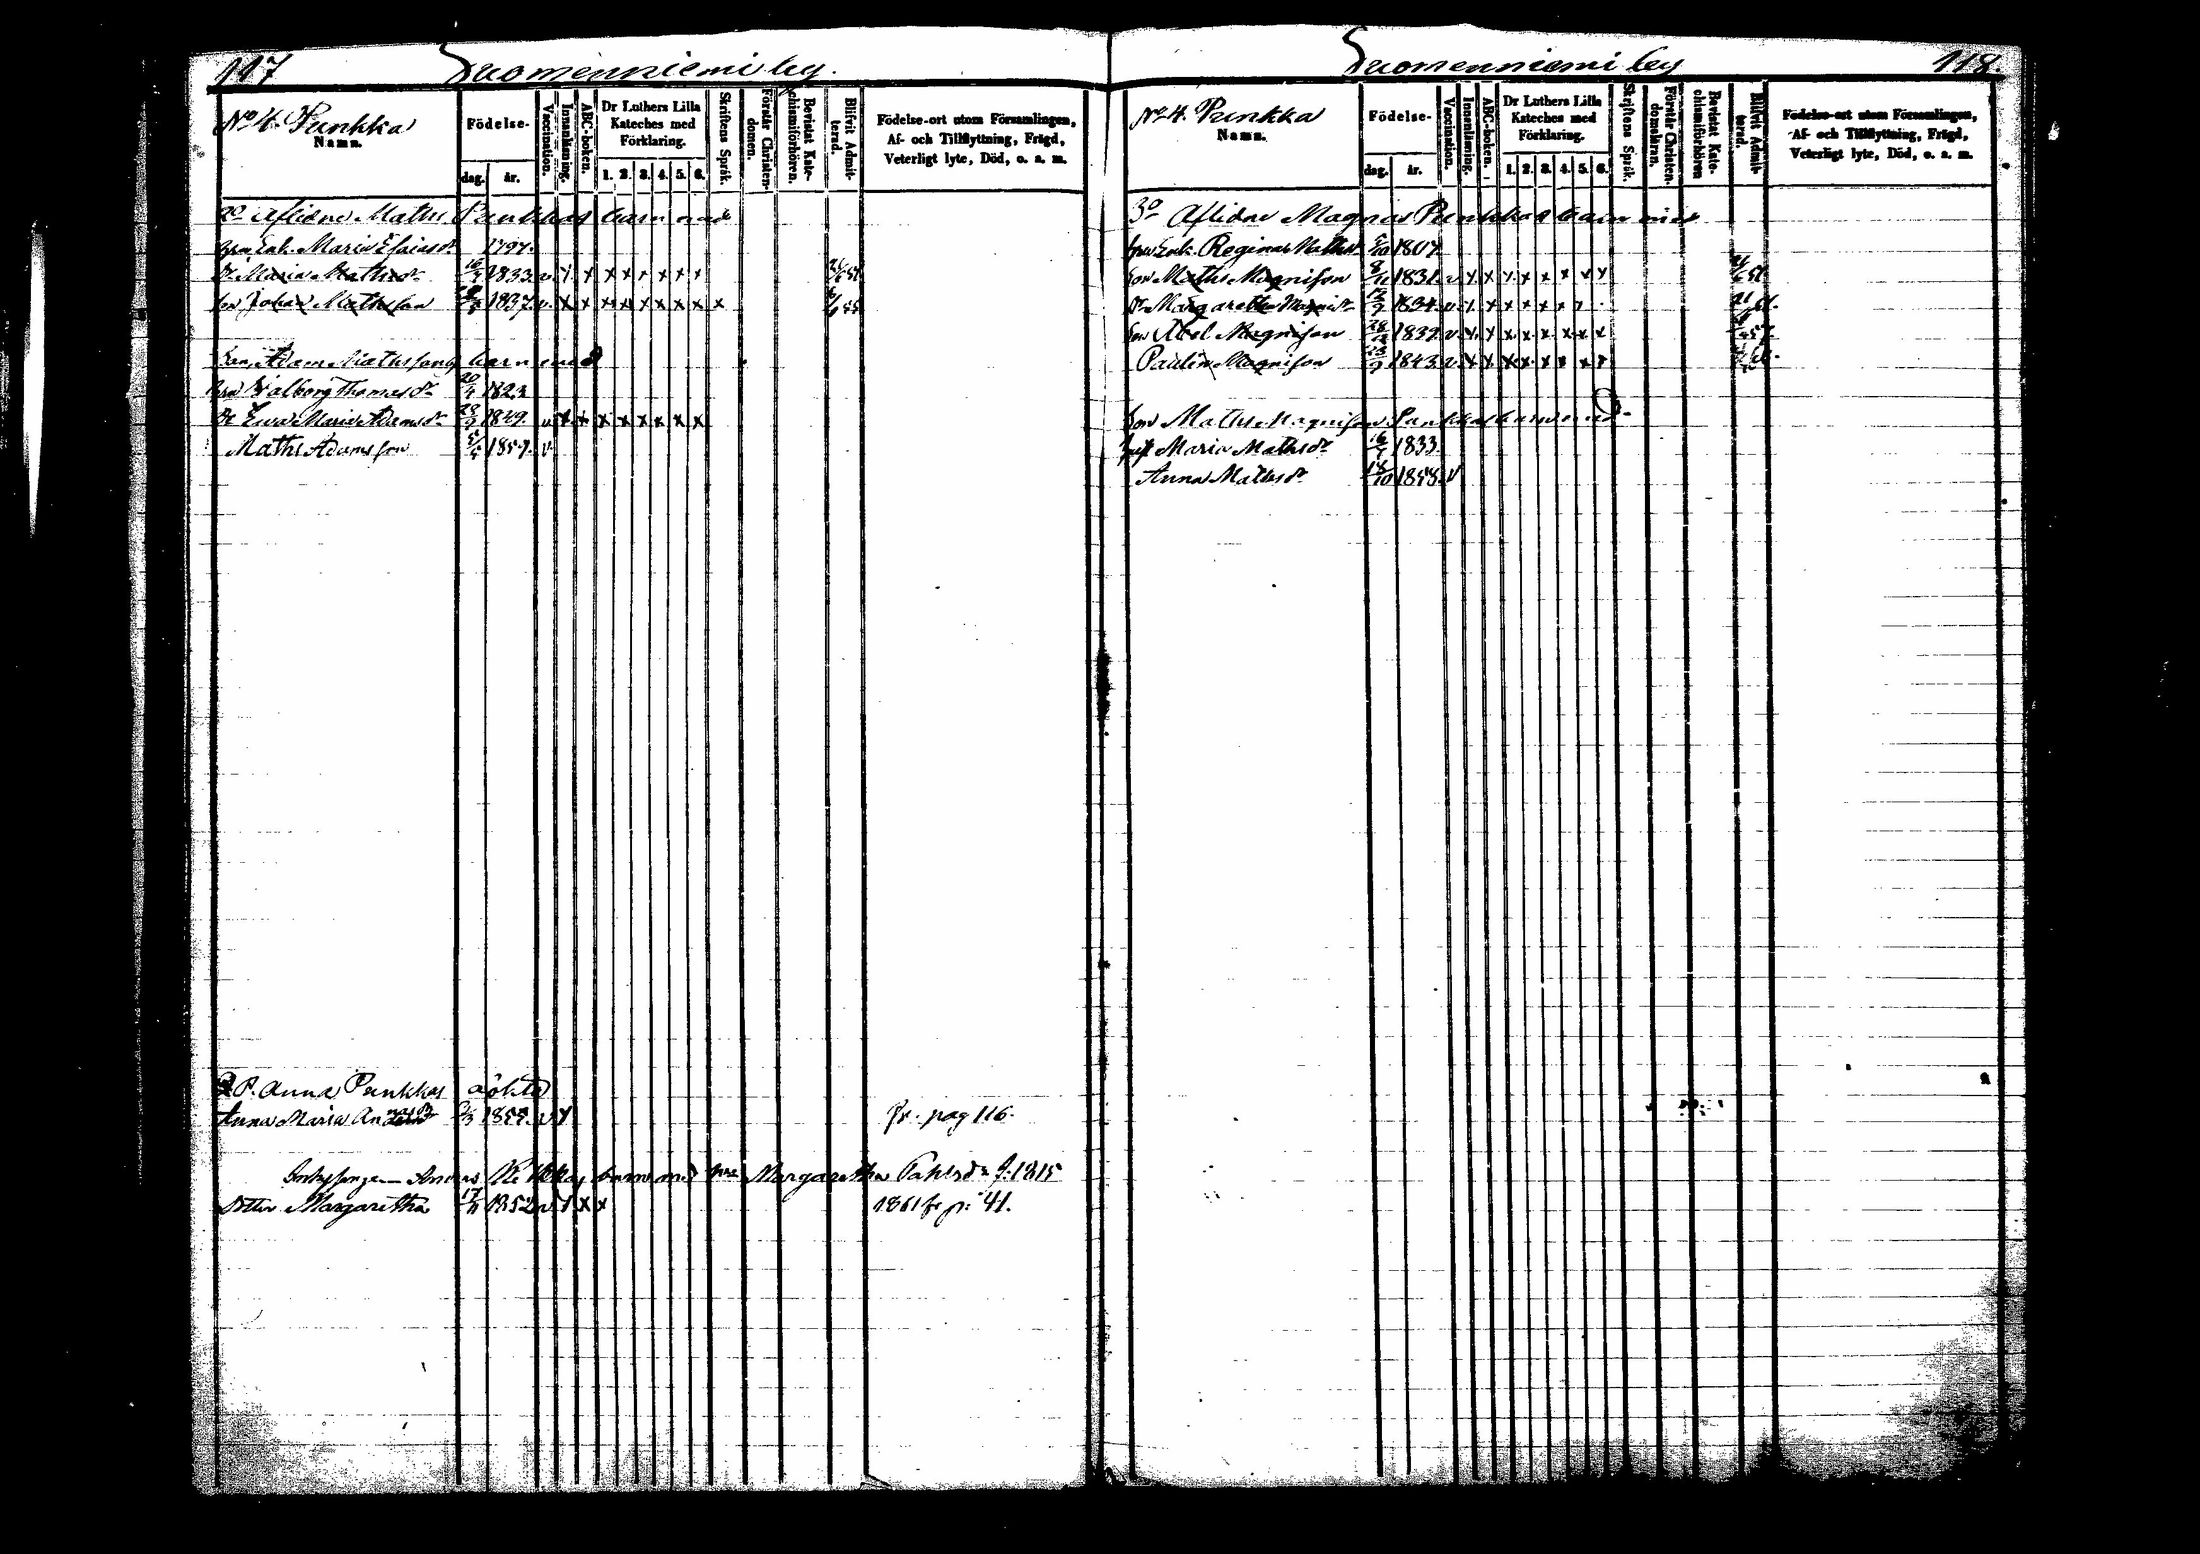 117
Suomenniemi by.
No 4. Punkka
Namn.
Födelse-
dag.
år.
Vaccination.
Innanläsning.
ABC-boken.
Dr Luthers Lilla Kateches med Förklaring.
1. 2. 3. 4. 5. 6.
Skriftens Språk.
Förstår Christendomen.
Bevistat Katechismiförhören.
Blifvit Admitterad.
Födelse-ort utom Församlingen,
Af- och Tillflyttning, Frägd,
Veterligt lyte, Död, o. a. m.
2o Aflidne Maths Punkkas barn med
Enk. Maria Esaiasdr 1797.
Dr Maria Mathsdr 16/5 1833. v. x x x x x x x x
Son Johan Mathsson 1837. v. x x x x x x x x x
Son Adam Mathssons barn med
Walborg Thomasdr 20/4 1823
Dr Ewa Maria Adamsdr 1849. v x x x x x x x x
Maths Adamsson 1857. v
Anna Punkkas oökta
Anna Maria 1855. v. x fr. pag 116.
Anders barn med Margaretha Pahlsdr f. 1815
Dotter Margaretha 17/11 1852 v x x x 1861 fr p: 41.
118.
Suomenniemi by
No 4. Punkka
Namn.
Födelse-
dag.
år.
Vaccination.
Innanläsning.
ABC-boken.
Dr Luthers Lilla Kateches med Förklaring.
1. 2. 3. 4. 5. 6.
Skriftens Språk.
Förstår Christendomsläran.
Bevistat Katechismiförhören
Blifvit Admitterad.
Födelse-ort utom Församlingen,
Af- och Tillflyttning, Frägd,
Veterligt lyte, Död, o. a. m.
3o Aflidne Magnus Punkkas barn med
Enk. Regina Mathsdr 5/10 1807
Son Maths Magnisson 8/11 1831. v x x x x x x x x
Dr Margaretha Magnidr 1834. v. x x x x x x x
Son Abel Magnisson 1839 v. x x x x x x x x
Paulin Magnisson 1843. v. x x x x x x x x
Son Maths Magnisson Punkkas barn med
Maria Mathsdr 16/5 1833
Anna Mathsdr 18/10 1858. v